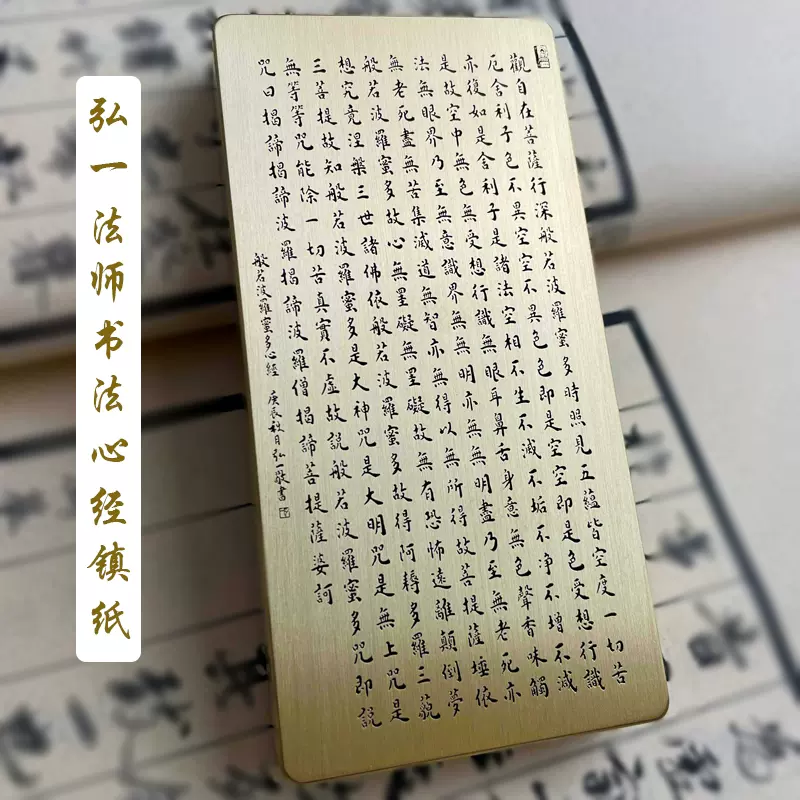 弘一法师书法心经镇纸
觀自在菩薩行深般若波羅蜜多時照見五蘊皆空度一切苦
厄舍利子色不異空空不異色色即是空空即是色受想行識
亦復如是舍利子是諸法空相不生不滅不垢不净不增不減
是故空中無色無受想行識無眼耳鼻舌身意無色聲香味觸
法無眼界乃至無意識界無無明亦無無明盡乃至無老死亦
無老死盡無苦集滅道無智亦無得以無所得故菩提薩埵依
般若波羅蜜多故心無罣礙無罣礙故無有恐怖遠離顛倒夢
想究竟涅槃三世諸佛依般若波羅蜜多故得阿耨多羅三藐
三菩提故知般若波羅蜜多是大神咒是大明咒是無上咒是
無等等咒能除一切苦真實不虛故說般若波羅蜜多咒即說
咒曰揭諦揭諦波羅揭諦波羅僧揭諦菩提薩婆訶
般若波羅蜜多心經 庚辰秋日弘一敬書